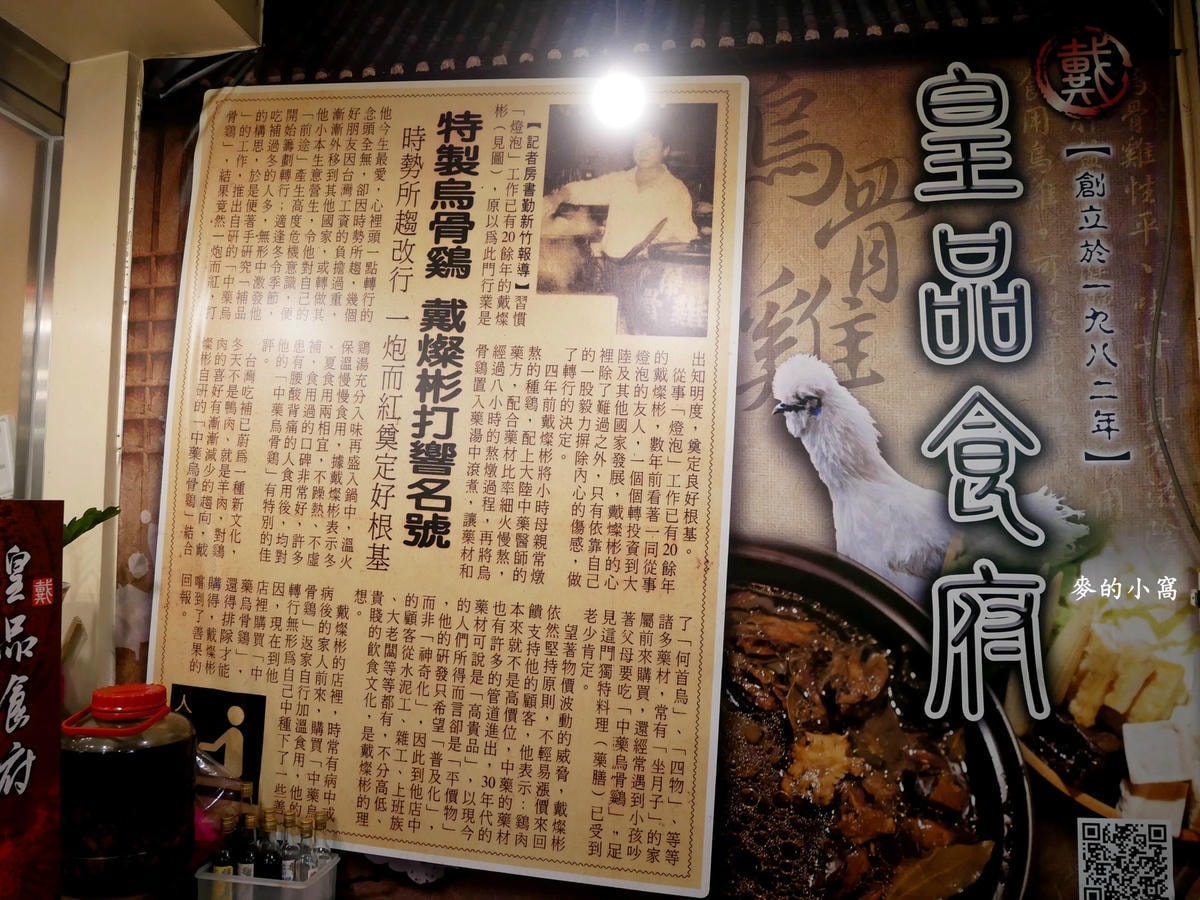 戴
皇品食府
【創立於一九八二年】
烏骨雞
特製烏骨鷄 戴燦彬打響名號
時勢所趨改行 一炮而紅奠定好根基
【記者房書勤新竹報導】習慣
「燈泡」工作已有20餘年的戴燦
彬（見圖），原以爲此門行業是
他今生最愛，心裡頭一點轉行的
念頭全無，卻因時勢所趨，幾個
好朋友因台灣工資的負擔過重，
漸漸外移到其他國家，或轉做其
他小本生意營生，令他對自己的
「前途」產生高度危機意識，便
開始籌劃轉行；適逢冬令季節，
吃補過冬的人多，無形中激發他
的構思，於是便著手研究「補品
」的工作，推出自研的「中藥烏
骨鷄」，結果竟然一炮而紅，打
出知明度，奠定良好根基。
從事「燈泡」工作已有20餘年
的戴燦彬，數年前看著一同從事
燈泡的友人，一個個轉投資到大
陸及其他國家發展，戴燦彬的心
裡除了難過之外，只有依靠自己
的一股毅力摒除內心的傷感，做
了轉行的決定。
四年前戴燦彬將小時母親常燉
熬的種鷄，配上大陸中藥醫師的
藥方，配合藥材比率細火慢熬，
經過八小時的熬燉過程，再將烏
骨鷄置入藥湯中滾煮，讓藥材和
鷄湯充分入味再盛入鍋中，溫火
保溫慢慢食用，據戴燦彬表示冬
、夏食用兩相宜，不躁熱、不虛
補，食用過的口碑非常好，許多
患有腰酸背痛的人食用後，均對
他的「中藥烏骨鷄」有特別的佳
評。
台灣吃補已蔚爲一種新文化，
冬天不是鴨肉、就是羊肉，對鷄
肉的喜好有漸漸減少的趨向，戴
燦彬自研的「中藥烏骨鷄」結合
了「何首烏」、「四物」、等等
諸多藥材，常有「坐月子」的家
屬前來購買，還經常遇到小孩吵
著父母要吃「中藥烏骨鷄」，足
見這門獨特料理（藥膳）已受到
老少肯定。
望著物價波動的威脅，戴燦彬
依然堅持原則，不輕易漲價來回
饋支持他的顧客，他表示：鷄肉
本來就不是高價位，中藥的藥材
也有許多的管道進出，30年代的
藥材可說是「高貴品」，以現今
的人們所得而言卻是「平價物」
，他的研發只希望「普及化」，
而非「神奇化」，因此到他店中
的顧客從水泥工、雜工、上班族
、大老闆等等都有，不分高低、
貴賤的飲食文化，是戴燦彬的理
想。
戴燦彬的店裡，時常有病中或
病後的家人前來，購買「中藥烏
骨鷄」返家自行加溫食用，他的
轉行無形爲自己中種下了一些善
因，現在到他
店裡購買「中
藥烏骨鷄」，
還得排隊才能
購得，戴燦彬
嚐到了善果的
回報。
戴
皇品食府
人
麥的小窩